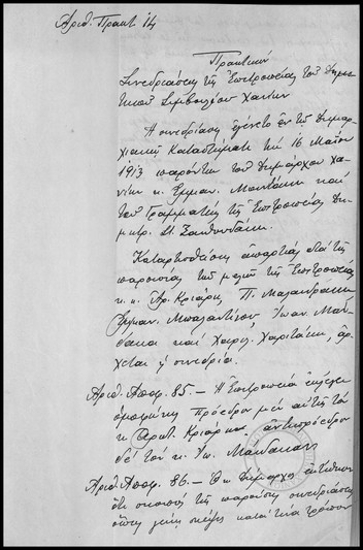 Αριθ. Πρακτ. 14
Πρακτικόν
Συνεδριάσεως της Επιτροπείας του Δημο
τικού Συμβουλίου Χανίων
Η συνεδρίασις εγένετο εν τω Δημαρ
χιακώ Καταστήματι τη 16 Μαΐου
1913 παρόντων του Δημάρχου Χα
νίων κ. Εμμαν. Μουντάκη και
του Γραμματέως της Επιτροπείας Δη
μητρ. Ζακουνδάκη
Καταρτισθείσης απαρτίας διά της
παρουσίας των μελών της Επιτροπείας
κ.κ. Αρ. Κριάρη, Π. Μαλανδράκη
Εμμαν. Μπαλαντίνου, Ιωάν. Μαν
δάκα και Χαριτάκη, άρ
χεται η συνεδρία.
Αριθ. Αποφ. 85. – Η Επιτροπεία εκλέγει
ομοφώνως Πρόεδρον μεν αυτής τον
κ. Αριστ. Κριάρην αντιπρόεδρον
δε τον κ. Ιω. Μάνδακαν
Αριθ. Αποφ. 86. – Ο κ. Δήμαρχος
ότι σκοπός της παρούσης συνεδριάσεως
όπως γείνη σκέψις κατά τίνα τρόπον